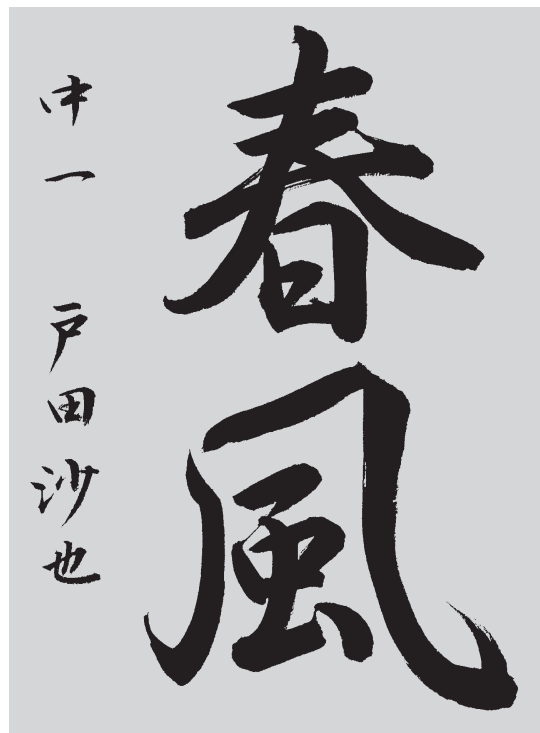 春風
中一 戸田沙也